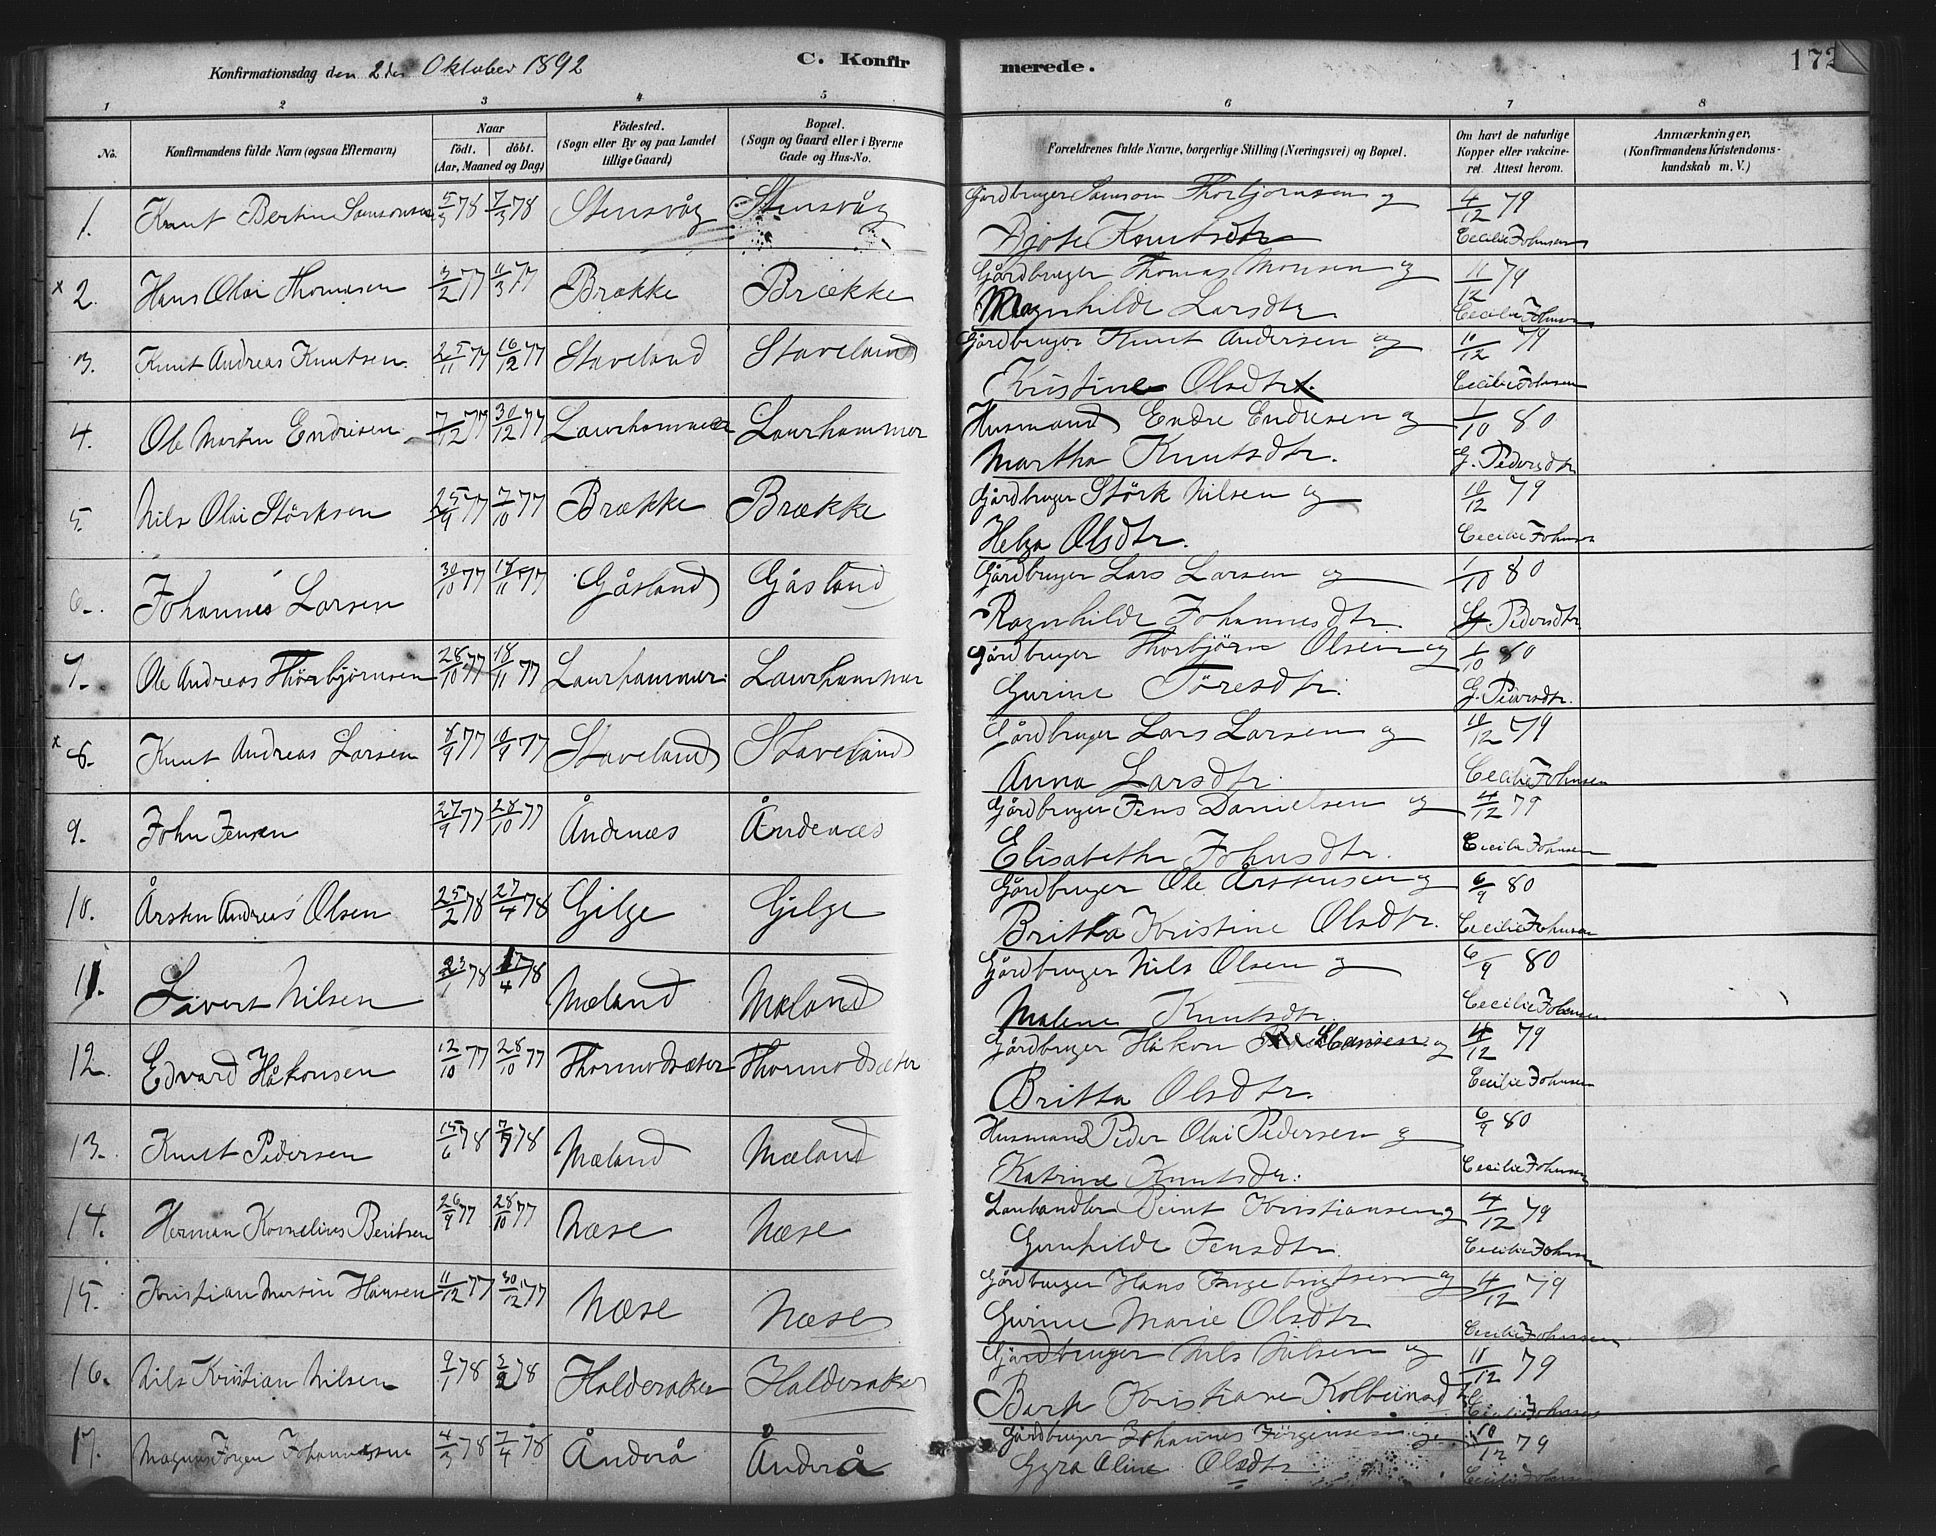 Konfirmationsdag den 2den Oktober 1892 C. Konfirmerede. 172
1 2 3 4 5 6 7 8
No. Konfirmandens fulde Navn (ogsaa Efternavn) Naar Födt. döbt. (Aar, Maaned og Dag) Födested. (Sogn eller By og paa Landet tillige Gaard) Bopæl. (Sogn og Gaard eller i Byerne Gade og Hus-No. Forældrenes fulde Navne, borgerlige Stilling (Næringsvei) og Bopæl. Om havt de naturlige Kopper eller vakcineret. Attest herom. Anmærkninger, (Konfirmandens Kristendomskundskab m. V.)
1. Knut Bertin Samsonsen 5/3 78 7/3 78 Stensvåg Stensvåg Gårdbruger Samson Thorbjørnsen og 4/12 79
Knutsdtr Cecilie Johnsen
x 2. Hans Olai Thomasen 3/2 77 11/3 77 Brække Brække Gårdbruger Thomas Monsen og 11/12 79
Magnhilde Larsdtr Cecilie Johnsen
3. Knut Andreas Knutsen 25/11 77 16/12 77 Staveland Staveland Gårdbruger Knut Andersen og 10/12 79
Kristine Olsdtr. Cecilie Johnsen
4. Ole Martin Endresen 7/12 77 30/12 77 Laurhammer Laurhammer Husmand Endre Endresen og 1/10 80
Martha Knutsdtr. G. Pedersdtr
5. Nils Olai Störksen 25/9 77 7/10 77 Brække Brække Gårdbruger Störk Nilsen og 10/12 79
Helga Olsdtr. Cecilie Johnsen
6. Johannes Larsen 30/10 77 18/11 77 Gåsland Gåsland Gårdbruger Lars Larsen og 1/10 80
Ragnhilde Johannesdtr. G. Pedersdtr.
7. Ole Andreas Thorbjørnsen 28/10 77 18/11 77 Laurhammer Laurhammer Gårdbruger Thorbjørn Olsen og 1/10 80
Gurine Töresdtr. G. Pedersdtr.
x 8. Knut Andreas Larsen 8/9 77 /9 77 Staveland Staveland Gårdbruger Lars Larsen og 10/12 79
Anna Larsdtr. Cecilie Johnsen
9. John Jensen 27/9 77 28/10 77 Åndenæs Åndenæs Gårdbruger Jens Danielsen og 4/12 79
Elisabethe Johnsdtr. Cecilie Johnsen
10. Årsten Andreas Olsen 25/2 78 27/4 78 Gilje Gilje Gårdbruger Ole Årstensen og 6/9 80
Britha Kristine Olsdtr. Cecilie Johnsen
11. Sivert Nilsen 23/1 78 /4 78 Mæland Mæland Gårdbruger Nils Olsen og 6/9 80
Malene Knutsdtr. Cecilie Johnsen
12. Edvard Håkonsen 12/10 77 28/10 77 Thormodsæter Thormodsæter Gårdbruger Håkon Hansen og 4/12 79
Britta Olsdtr. Cecilie Johnsen
13. Knut Pedersen 15/6 78 7/7 78 Mæland Mæland Husmand Peder Olai Pedersen og 6/9 80
Katrine Knutsdtr. Cecilie Johnsen
14. Herman Kornelius Berntsen 26/9 77 28/10 77 Næse Næse Lanhandler Bernt Kristiansen og 4/12 79
Gunhilde Jensdtr. Cecilie Johnsen
15. Kristian Martin Hansen 11/12 77 30/12 77 Næse Næse Gårdbruger Hans Ingebrigtsen og 4/12 79
Gurine Marie Olsdtr Cecilie Johnsen
16. Nils Kristian Nilsen 9/1 78 3/2 78 Halderaker Halderaker Gårdbruger Nils Nilsen og 11/12 79
Kristiane Kolbeinsdtr Cecilie Johnsen
17. Magnus Jörgen Johannessen 4/3 78 7/4 78 Ånderå Ånderå Gårdbruger Johannes Jörgensen og 10/12 79
Gyra Oline Olsdtr Cecilie Johnsen